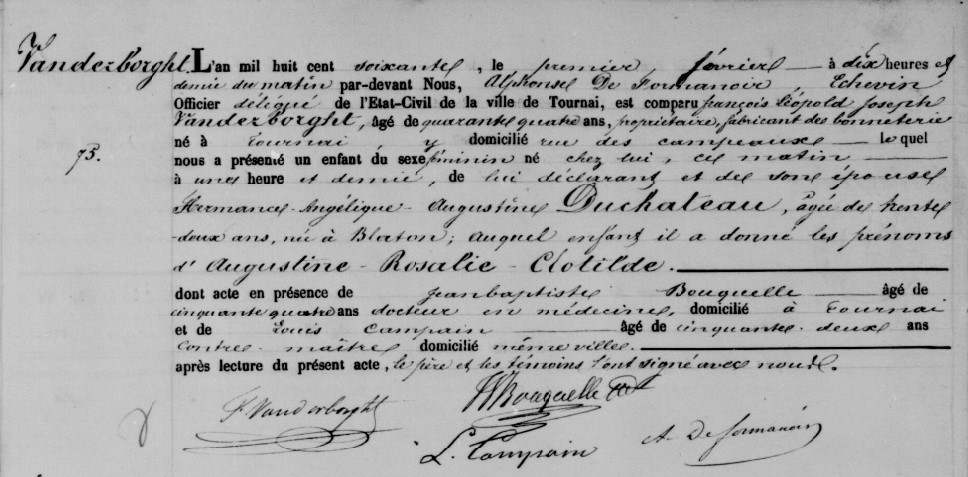 Vanderborght. L'an mil huit cent soixante, le premier février à dix heures et
demie du matin par-devant Nous, Alphonse De Formanoir, Echevin
Officier délégué de l'Etat-Civil de la ville de Tournai, est comparu françois Léopold Joseph
Vanderborght, âgé de quarante quatre ans, propriétaire, fabricant de bonneterie
né à Tournai, y domicilié rue des campeaux le quel
73.
nous a présenté un enfant du sexe féminin né chez lui, ce matin
à une heure et demie, de lui déclarant et de son épouse
Hermance-Angélique-Augustine Duchateau, âgée de trente
-deux ans, née à Blaton; auquel enfant il a donné les prénoms
d'Augustine-Rosalie-Clotilde.
dont acte en présence de Jeanbaptiste Bouquelle âgé de
cinquante quatre ans docteur en médecine, domicilié à Tournai
et de Louis Campain âgé de cinquante-deux ans
contre-maître domicilié même ville.
après lecture du présent acte, le père et les témoins l'ont signé avec nous.
F. Vanderborght Bouquelle
L. Campain A. De formanoir